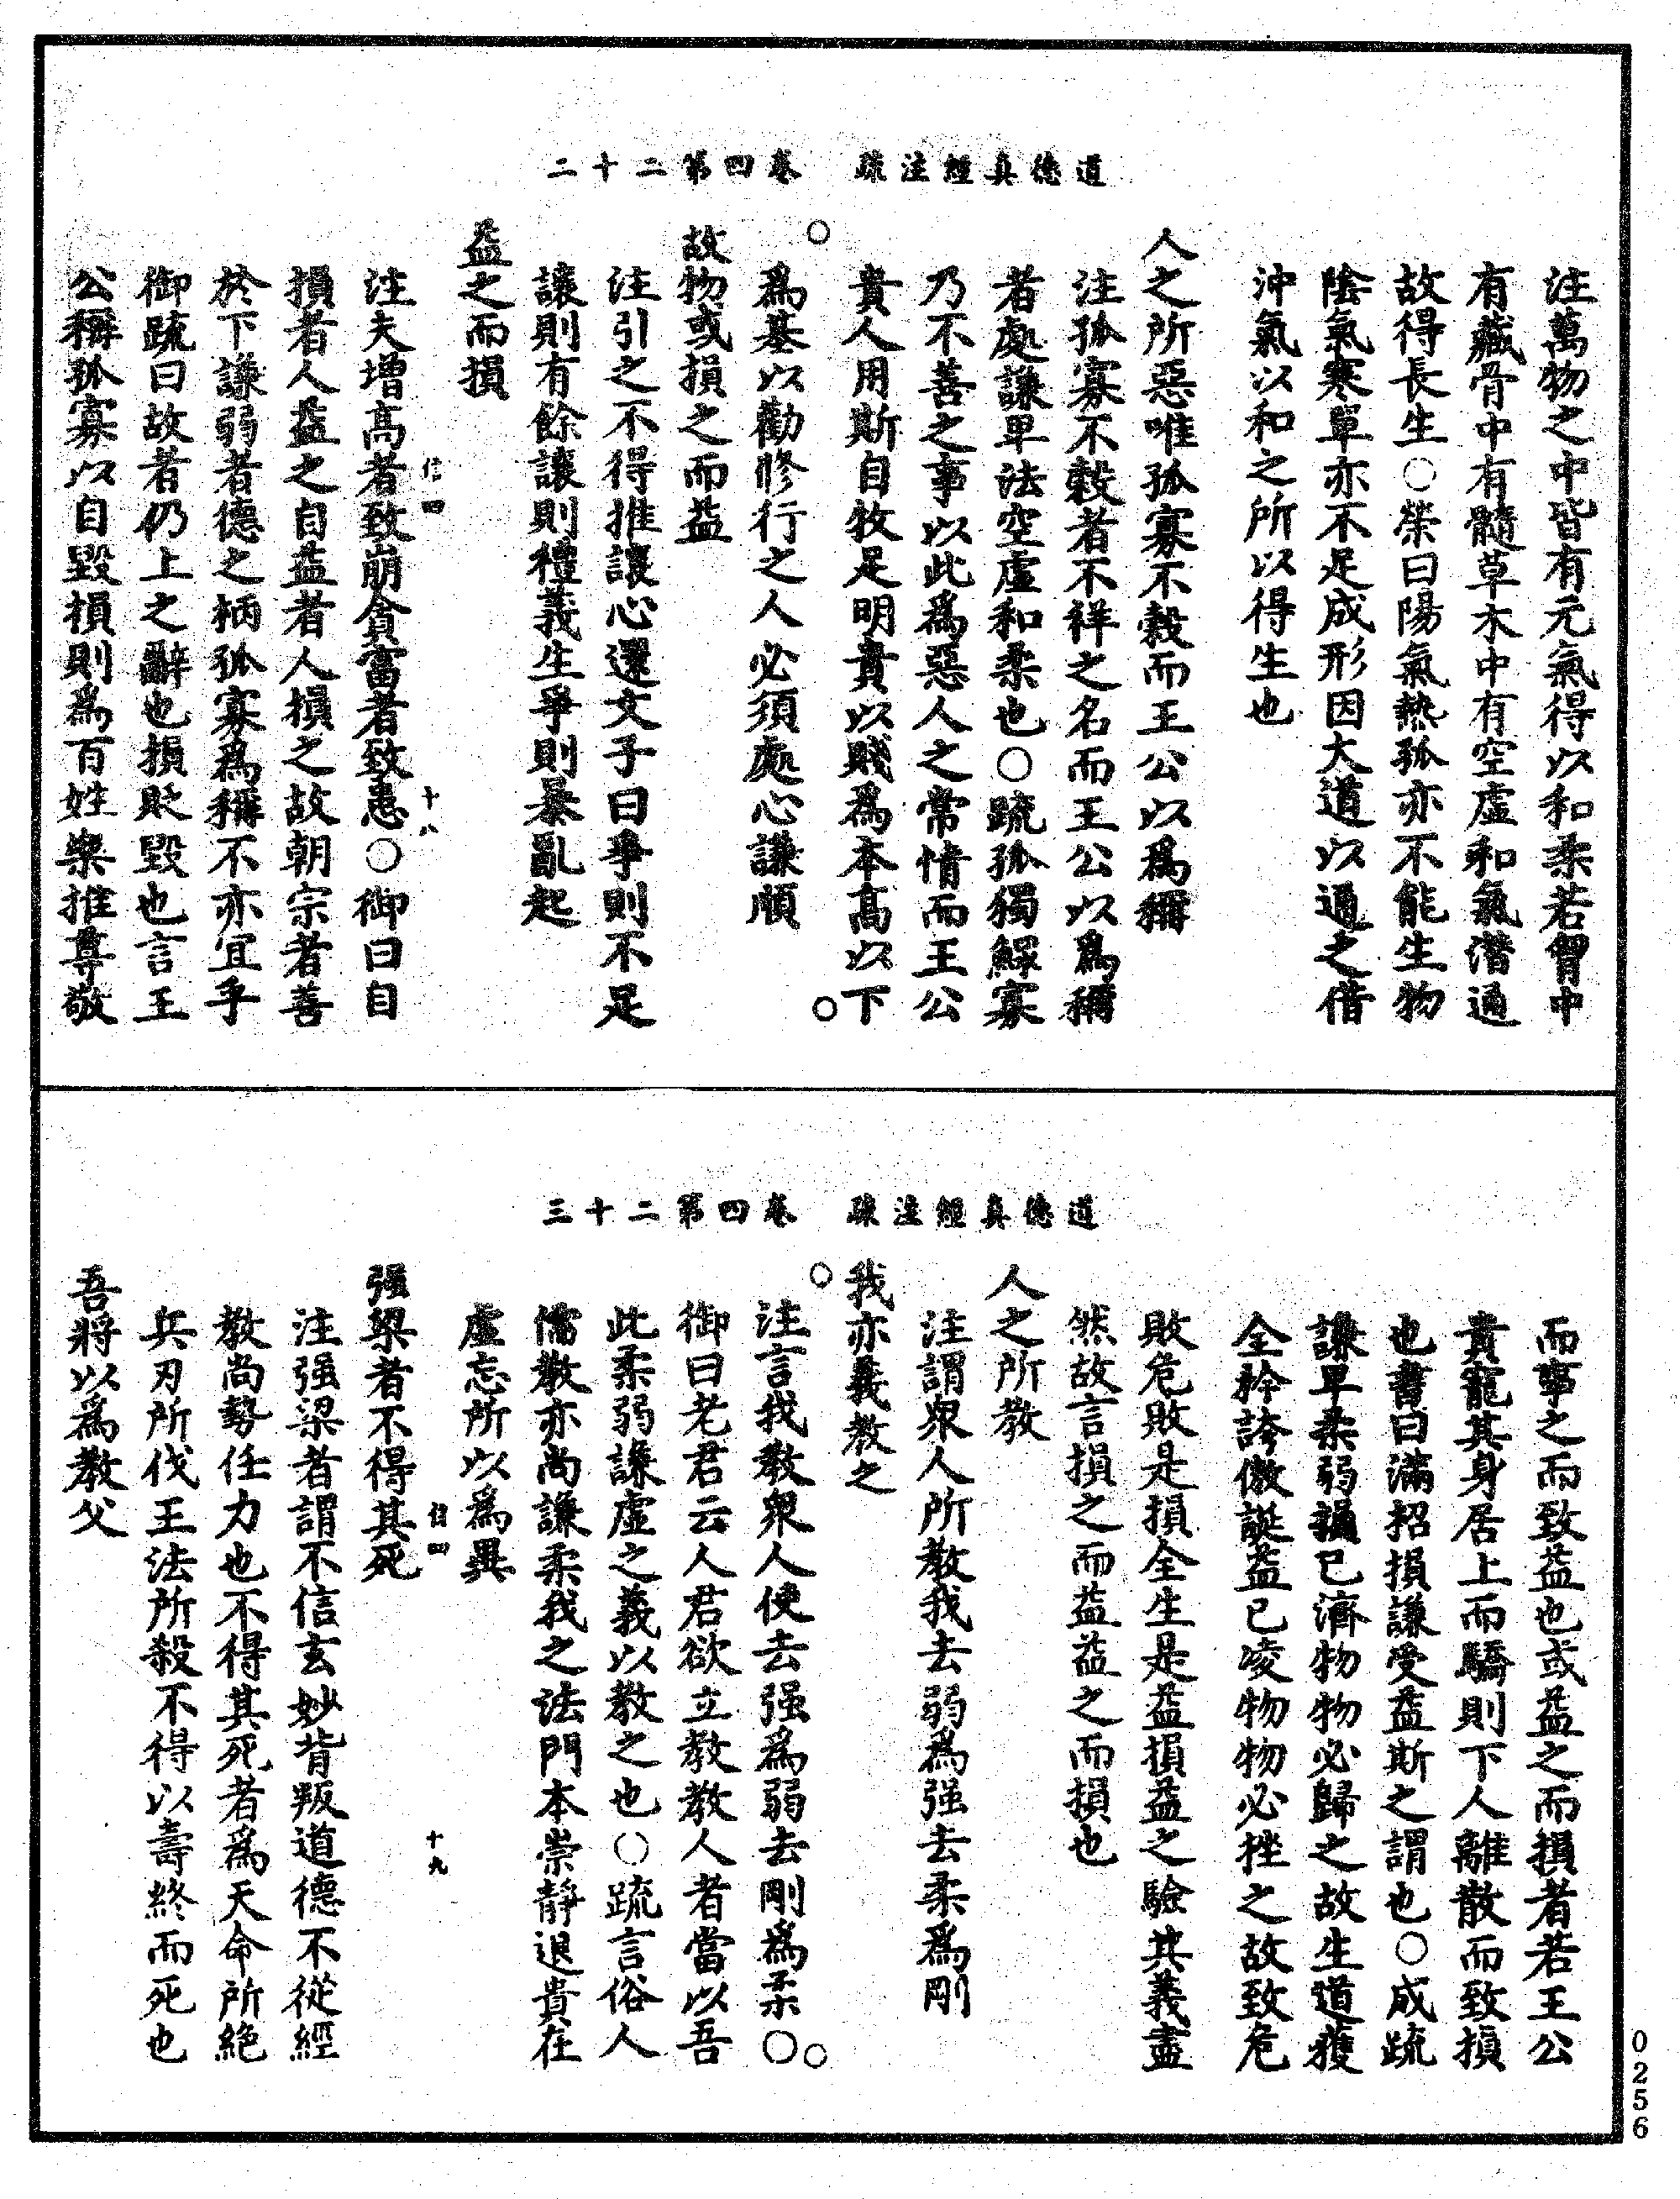 道德真經注疏　卷四第二十二
注萬物之中皆有元氣得以和柔若胷中
有藏骨中有髓草木中有空虛和氣潛通
故得長生○榮曰陽氣熱孤亦不能生物
陰氣寒單亦不足成形因大道以通之借
沖氣以和之所以得生也
人之所惡唯孤寡不穀而王公以爲稱
注孤寡不穀者不祥之名而王公以爲稱
者處謙卑法空虛和柔也○疏孤獨鰥寡
乃不善之事以此爲惡人之常情而王公
貴人用斯自牧足明貴以賤爲本高以下
爲基以勸修行之人必須處心謙順
故物或損之而益
注引之不得推讓心還文子曰爭則不足
讓則有餘讓則禮義生爭則暴亂起
益之而損
信四　十八
注夫增高者致崩貪富者致患○御曰自
損者人益之自益者人損之故朝宗者善
於下謙弱者德之柄孤寡爲稱不亦宜乎
御疏曰故者仍上之辭也損貶毀也言王
公稱孤寡以自毀損則爲百姓樂推尊敬
道德真經注疏　卷四第二十三
而事之而致益也或益之而損者若王公
貴寵其身居上而驕則下人離散而致損
也書曰滿招損謙受益斯之謂也○成疏
謙卑柔弱損已濟物物必歸之故生道獲
全矜誇傲誕益已凌物物必挫之故致危
敗危敗是損全生是益損益之驗其義盡
然故言損之而益益之而損也
人之所教
注謂衆人所教我去弱爲强去柔爲剛
我亦義教之
注言我教衆人使去强爲弱去剛爲柔○
御曰老君云人君欲立教教人者當以吾
此柔弱謙虛之義以教之也○疏言俗人
儒教亦尚謙柔我之法門本崇靜退貴在
虛忘所以爲異
信四　十九
强梁者不得其死
注强梁者謂不信玄妙背叛道德不從經
教尚勢任力也不得其死者爲天命所絕
兵刃所伐王法所殺不得以壽終而死也
吾將以爲教父
0256